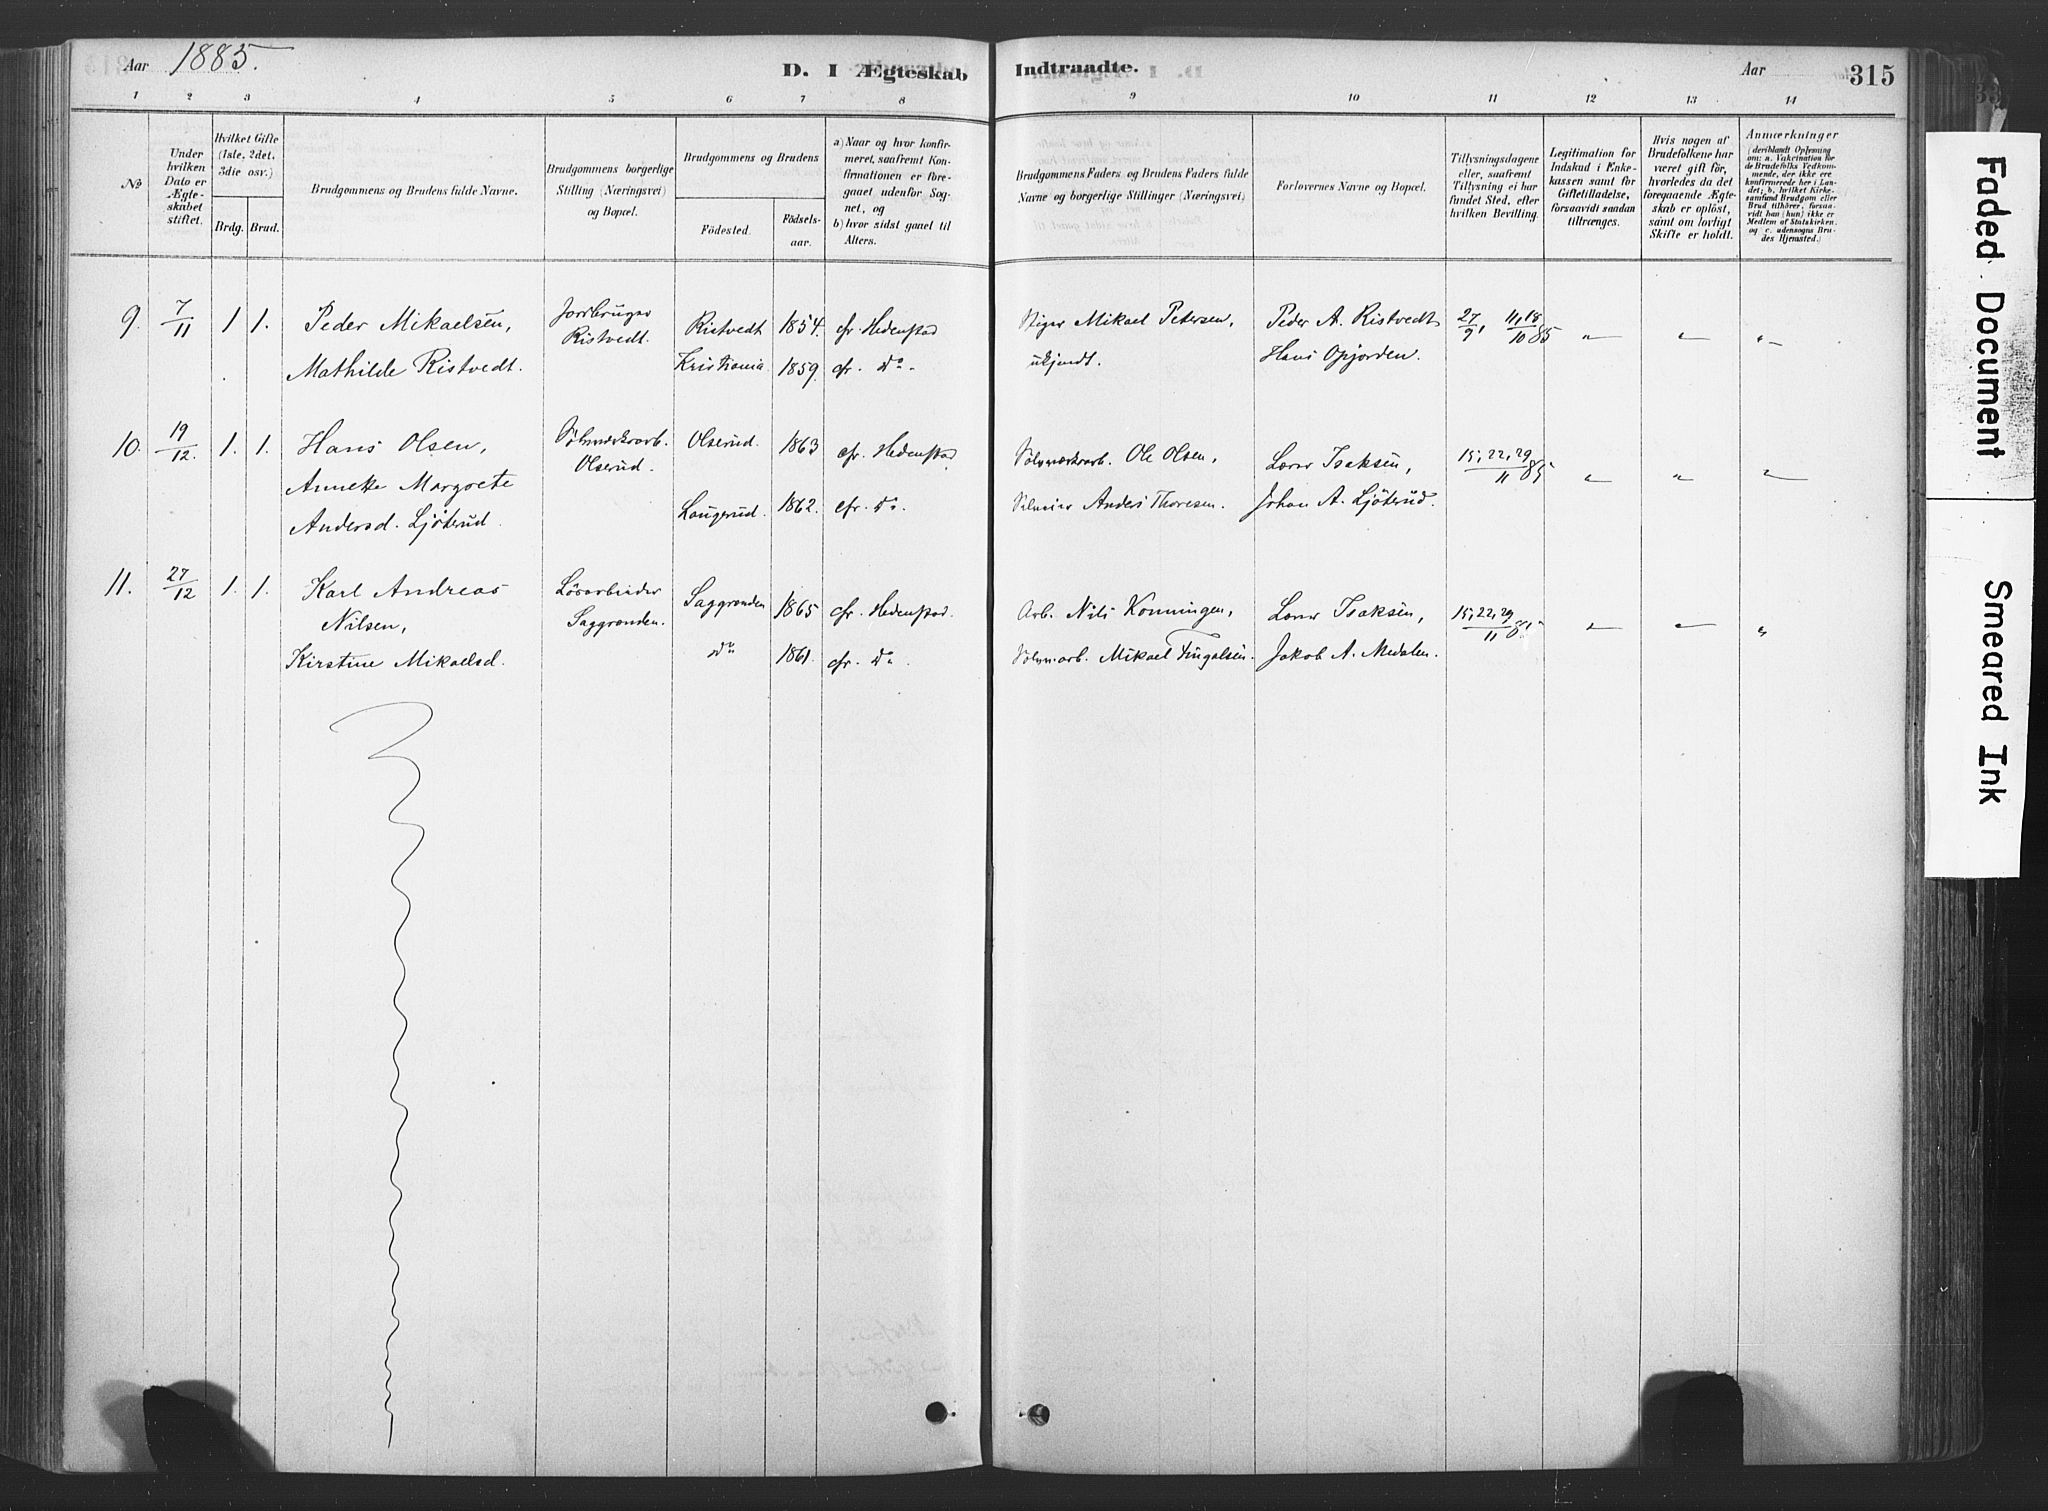 Aar 1885.
D. I Ægteskab Indtraadte.
Aar 315
1 2 3 4 5 6 7 8 9 10 11 12 13 14
№
Under hvilken Dato er Ægteskabet stiftet.
Hvilket Gifte (1ste, 2det, 3die osv.)
Brdg. Brud.
Brudgommens og Brudens fulde Navne.
Brudgommens borgerlige Stilling (Næringsvei) og Bopæl.
Brudgommens og Brudens
Fødested. Fødselsaar.
a) Naar og hvor konfirmeret, saafremt Konfirmationen er foregaaet udenfor Sognet, og
b) hvor sidst gaaet til Alters.
Brudgommens Faders og Brudens Faders fulde Navne og borgerlige Stillinger (Næringsvei)
Forlovernes Navne og Bopæl.
Tillysningsdagene eller, saafremt Tillysning ei har fundet Sted, efter hvilken Bevilling.
Legitimation for Indskud i Enkekassen samt for Giftetilladelse, forsaavidt saadan tiltrænges.
Hvis nogen af Brudefolkene har været gift før, hvorledes da det foregaaende Ægteskab er opløst, samt om lovligt Skifte er holdt.
Anmærkninger (deriblandt Oplysning om: a. Vakcination for de Brudefolks Vedkommende, der ikke ere konfirmerede her i Landet; b. hvilket Kirkesamfund Brudgom eller Brud tilhører, forsaavidt han (hun) ikke er Medlem af Statskirken, og c. udensogns Brudes Hjemsted.)
9. 7/11 1 1. Peder Mikaelsen, Jordbruger Ristvedt 1854. cfr. Hedenstad Stiger Mikael Petersen, Peder A. Ristvedt 27/9, 11,18/10 85 " " "
Ristvedt.
Mathilde Ristvedt. Kristiania 1859. cfr. do. ukjendt. Hans Opjorden.
10. 19/12. 1. 1. Hans Olsen, Sølvverksarb. Olserud. 1863 cfr. Hedenstad Sølvverksarb. Ole Olsen, Isaksen, 15, 22, 29/11 85 " " "
Olserud.
Annette Margrete Laugerud. 1862. cfr. do. Anders Thoresen. Johan A. Ljøterud.
Andersd. Ljøterud.
11. 27/12 1. 1. Karl Andreas Løsarbeider Saggrenden 1865 cfr. Hedenstad. Arb. Nils Konningen, Isaksen, 15, 22, 29/11 85 " " "
Nilsen, Saggrenden.
Kirstine Mikaelsd. do 1861. cfr. do. Mikael Fingalsen. Jakob A. Medalen.
Faded Document
Smeared Ink